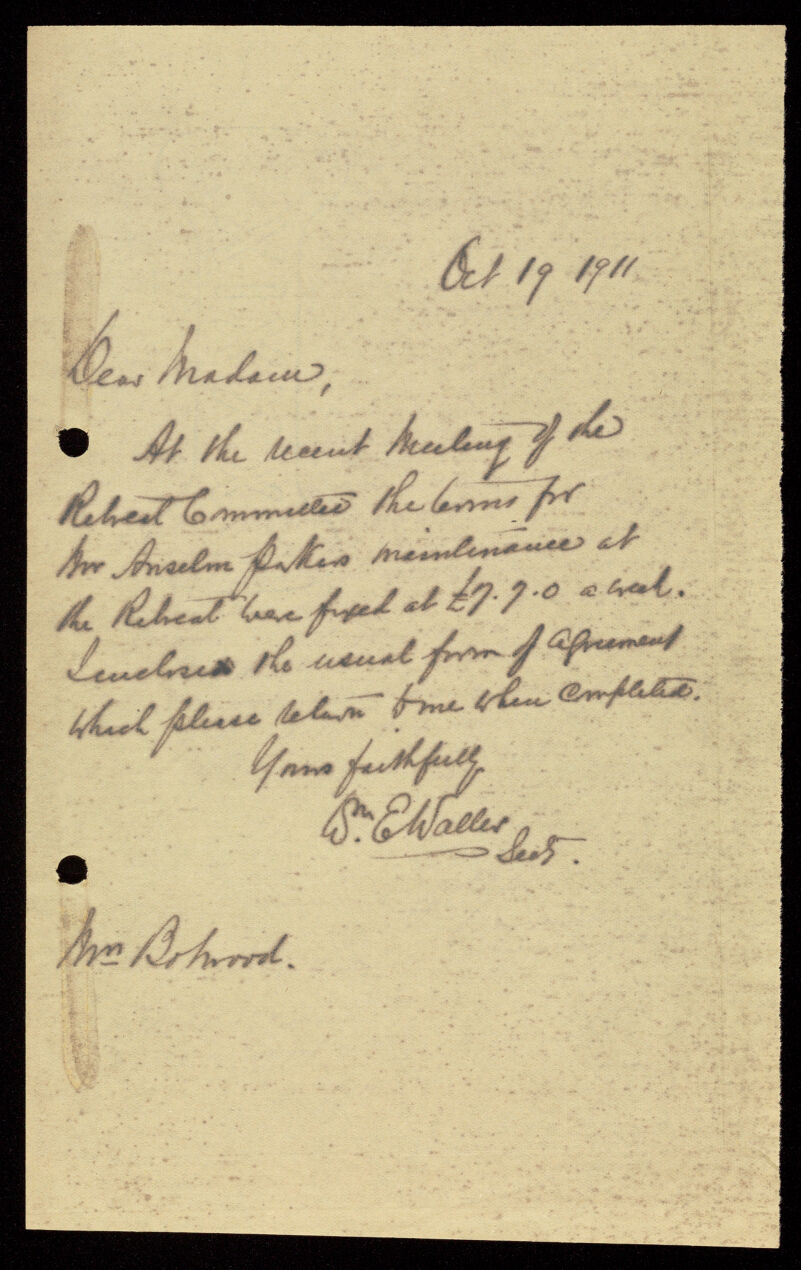 Oct 19 1911
Dear Madam,
At the recent Meeting of the
Retreat Committee the terms for
Mr Anselm Parkers maintenance at
the Retreat were fixed at £7.7.0 a week.
I enclose the usual form of agreement
which please return to me when completed.
Yours faithfully
Wm. E Waller
Secty.
Mrs Botwood.